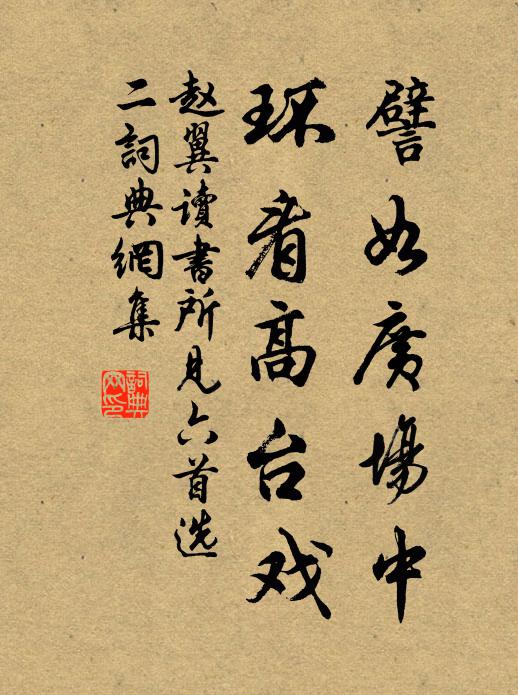 譬如廣場中
环看高台戏
赵翼讀書所見六首选
二詞典網集
詞典網印